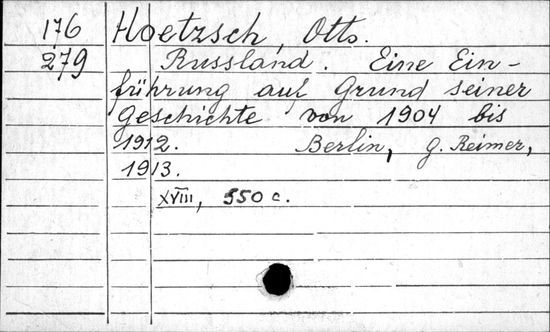 176 Hoetzsch, Otto.
279 Russland. Eine Ein-
führung auf Grund seiner
Geschichte von 1904 bis
1912. Berlin, G. Reimer,
1913.
XVIII, 550 c.